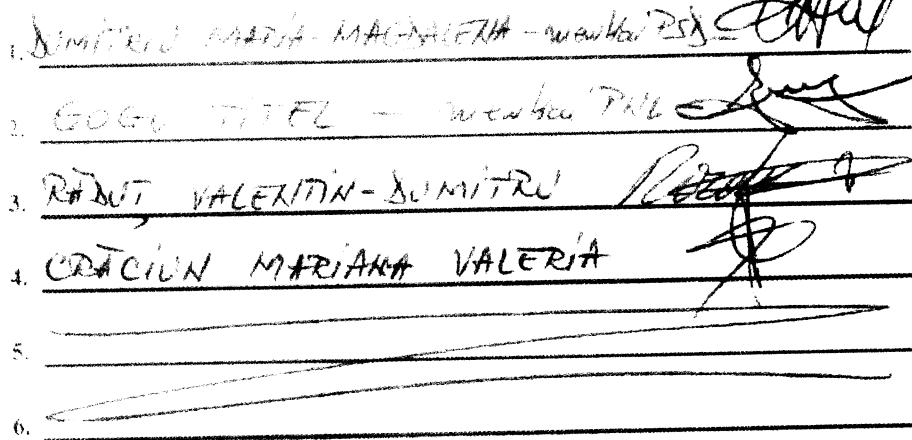 1. DUMITRIU MARIA-MAGDALENA - membru PSD
2. GOGU TITEL - membru PNL
3. RĂDUȚ VALENTIN-DUMITRU
4. CRĂCIUN MARIANA VALERIA
5.
6.